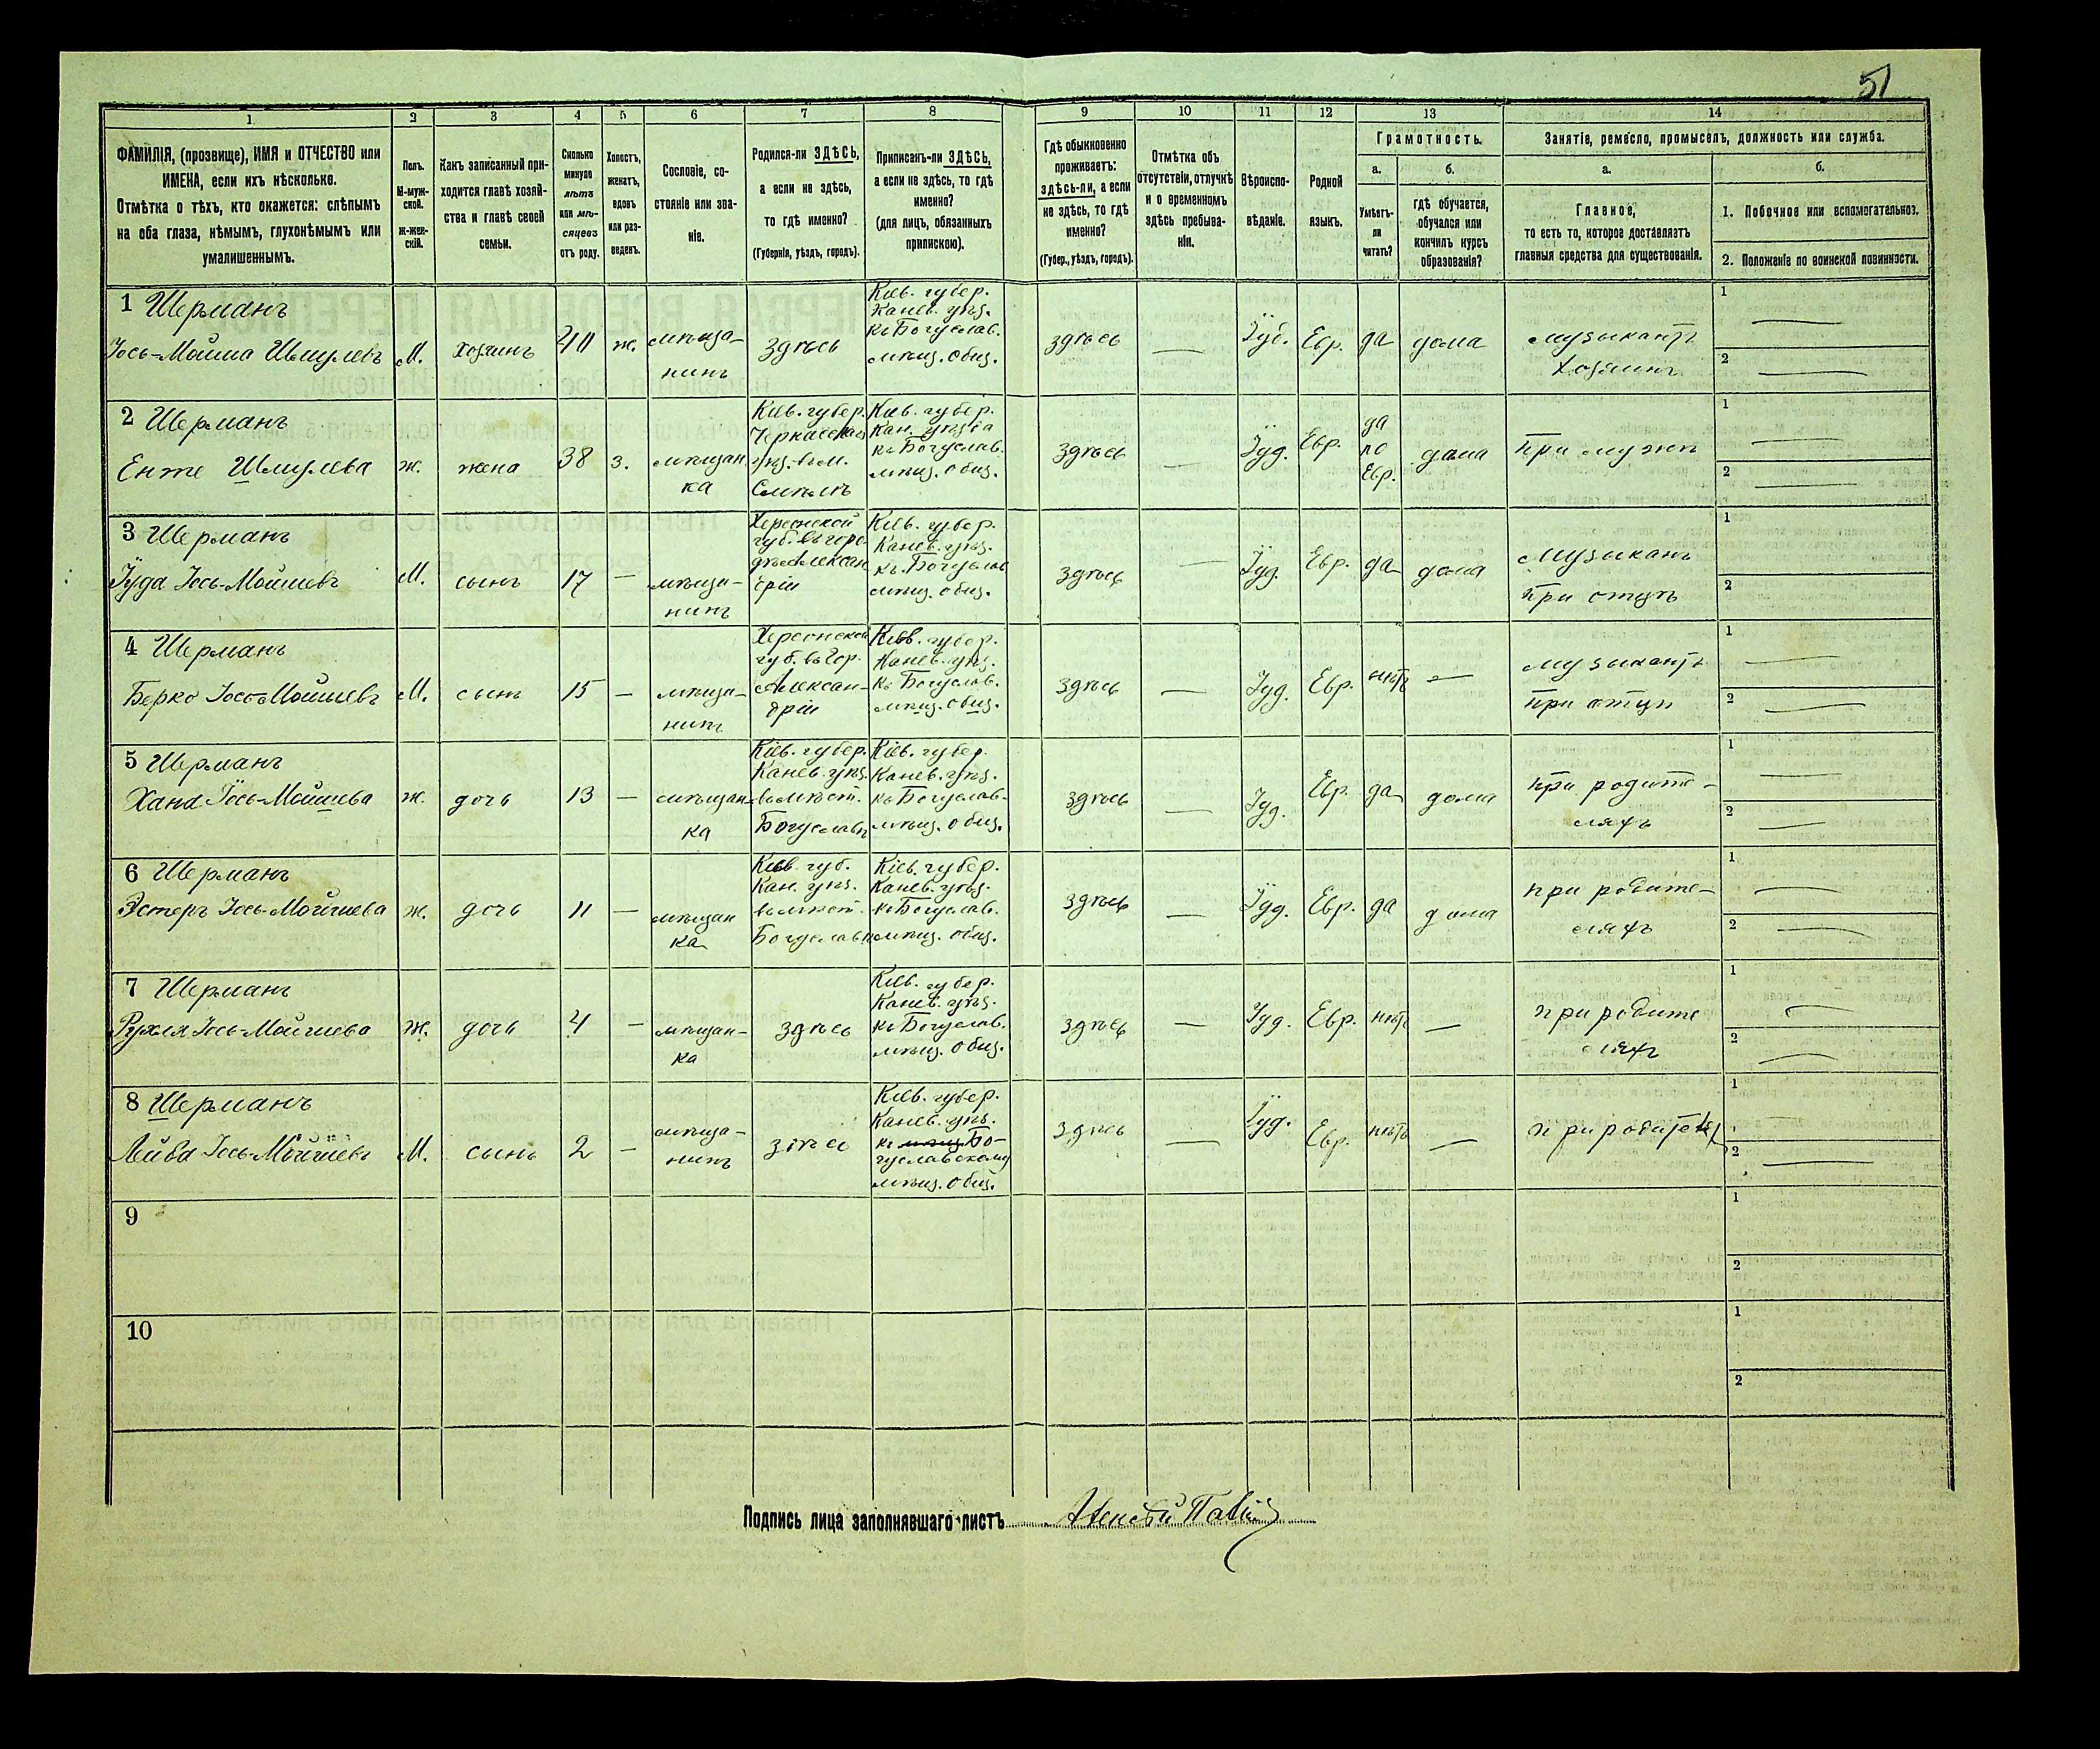 51
1 2 3 4 5 6 7 8 9 10 11 12 13 14
ФАМИЛІЯ, (прозвище), ИМЯ и ОТЧЕСТВО или
ИМЕНА, если ихъ нѣсколько.
Отмѣтка о тѣхъ, кто окажется: слѣпымъ
на оба глаза, нѣмымъ, глухонѣмымъ или
умалишеннымъ.
Полъ.
М-муж-
ской.
Ж-жен-
скій.
Какъ записанный при-
ходится главѣ хозяй-
ства и главѣ своей
семьи.
Сколько
минуло
лѣтъ
или мѣ-
сяцевъ
отъ роду.
Холостъ,
женатъ,
вдовъ
или раз-
веденъ.
Сословіе, со-
стояніе или зва-
ніе.
Родился-ли ЗДѢСЬ,
а если не здѣсь,
то гдѣ именно?
(Губернія, уѣздъ, городъ).
Приписанъ-ли ЗДѢСЬ,
а если не здѣсь, то гдѣ
именно?
(для лицъ, обязанныхъ
припискою).
Гдѣ обыкновенно
проживаетъ:
здѣсь-ли, а если
не здѣсь, то гдѣ
именно?
(Губер., уѣздъ, городъ).
Отмѣтка объ
отсутствіи, отлучкѣ
и о временномъ
здѣсь пребыва-
ніи.
Вѣроиспо-
вѣданіе.
Родной
языкъ.
Грамотность.
а.
Умѣетъ-
ли
читать?
б.
гдѣ обучается,
обучался или
кончилъ курсъ
образованія?
Занятіе, ремесло, промыселъ, должность или служба.
а.
Главное,
то есть то, которое доставляетъ
главныя средства для существованія.
б.
1. Побочное или вспомогательное.
2. Положеніе по воинской повинности.
1 Шерманъ
Іось-Мойша Шмулевъ
М.
хозяинъ
40
ж.
мѣща-
нинъ
здѣсь
Кіев. губер.
Канев. уѣз.
къ Богуслав.
мѣщ. общ.
здѣсь
—
Іуд.
Евр.
да
дома
музыкантъ
хозяинъ
1 —
2 —
2 Шерманъ
Енте Шмулева
ж.
жена
38
з.
мѣщан
ка
Кіев. губер.
Черкасскаго
уѣз. в м.
Смѣлѣ
Кіев. губер.
Кан. уѣзда
къ Богуслав.
мѣщ. общ.
здѣсь
—
Іуд.
Евр.
да
по
Евр.
дома
при мужѣ
1
2 —
3 Шерманъ
Іуда Іось-Мойшевъ
М.
сынъ
17
—
мѣща-
нинъ
Херсонской
губ. въ горо-
дѣ Алексан
дріи
Кіев. губер.
Канев. уѣз.
къ. Богуслав
мѣщ. общ.
здѣсь
—
Іуд.
Евр.
да
дома
Музыкан
при отцѣ
1
2
4 Шерманъ
Берко Іось-Мойшевъ
М.
сынъ
15
—
мѣща-
нинъ
Херсонской
губ. въ гор.
Алексан-
дріи
Кіев. губер.
Канев. уѣз.
къ Богуслав.
мѣщ. общ.
здѣсь
—
Іуд.
Евр.
нѣтъ
—
музыкантъ
при отцѣ
1 —
2 —
5 Шерманъ
Хана Іось-Мойшева
ж.
дочь
13
—
мѣщан
ка
Кіев. губер.
Канев. уѣз.
въ мѣст.
Богуславѣ
Кіев. губер.
Канев. уѣз.
къ Богуслав-
мѣщ. общ.
здѣсь
—
Іуд.
Евр.
да
дома
при родите-
ляхъ
1 —
2 —
6 Шерманъ
Эстеръ Іось-Мойшева
ж.
дочь
11
—
мѣщан
ка
Кіев. губ.
Кан. уѣз.
въ мѣст.
Богуславѣ
Кіев. губер.
Канев. уѣз.
къ Богуслав.
мѣщ. общ.
здѣсь
—
Іуд.
Евр.
да
дома
при родите-
ляхъ
1 —
2 —
7 Шерманъ
Рухля Іось-Мойшева
ж.
дочь
4
—
мѣщан-
ка
здѣсь
Кіев. губер.
Канев. уѣз.
къ Богуслав.
мѣщ. общ.
здѣсь
—
Іуд.
Евр.
нѣтъ
—
при родите
ляхъ
1 —
2 —
8 Шерманъ
Лейба Іось-Мойшевъ
М.
сынъ
2
—
мѣща-
нинъ
здѣсь
Кіев. губер.
Канев. уѣз.
къ мѣщ. Бо-
гуславскому
мѣщ. общ.
здѣсь
—
Іуд.
Евр.
нѣтъ
—
при родител
1 —
2 —
9
1
2
10
1
2
Подпись лица заполнявшаго листъ